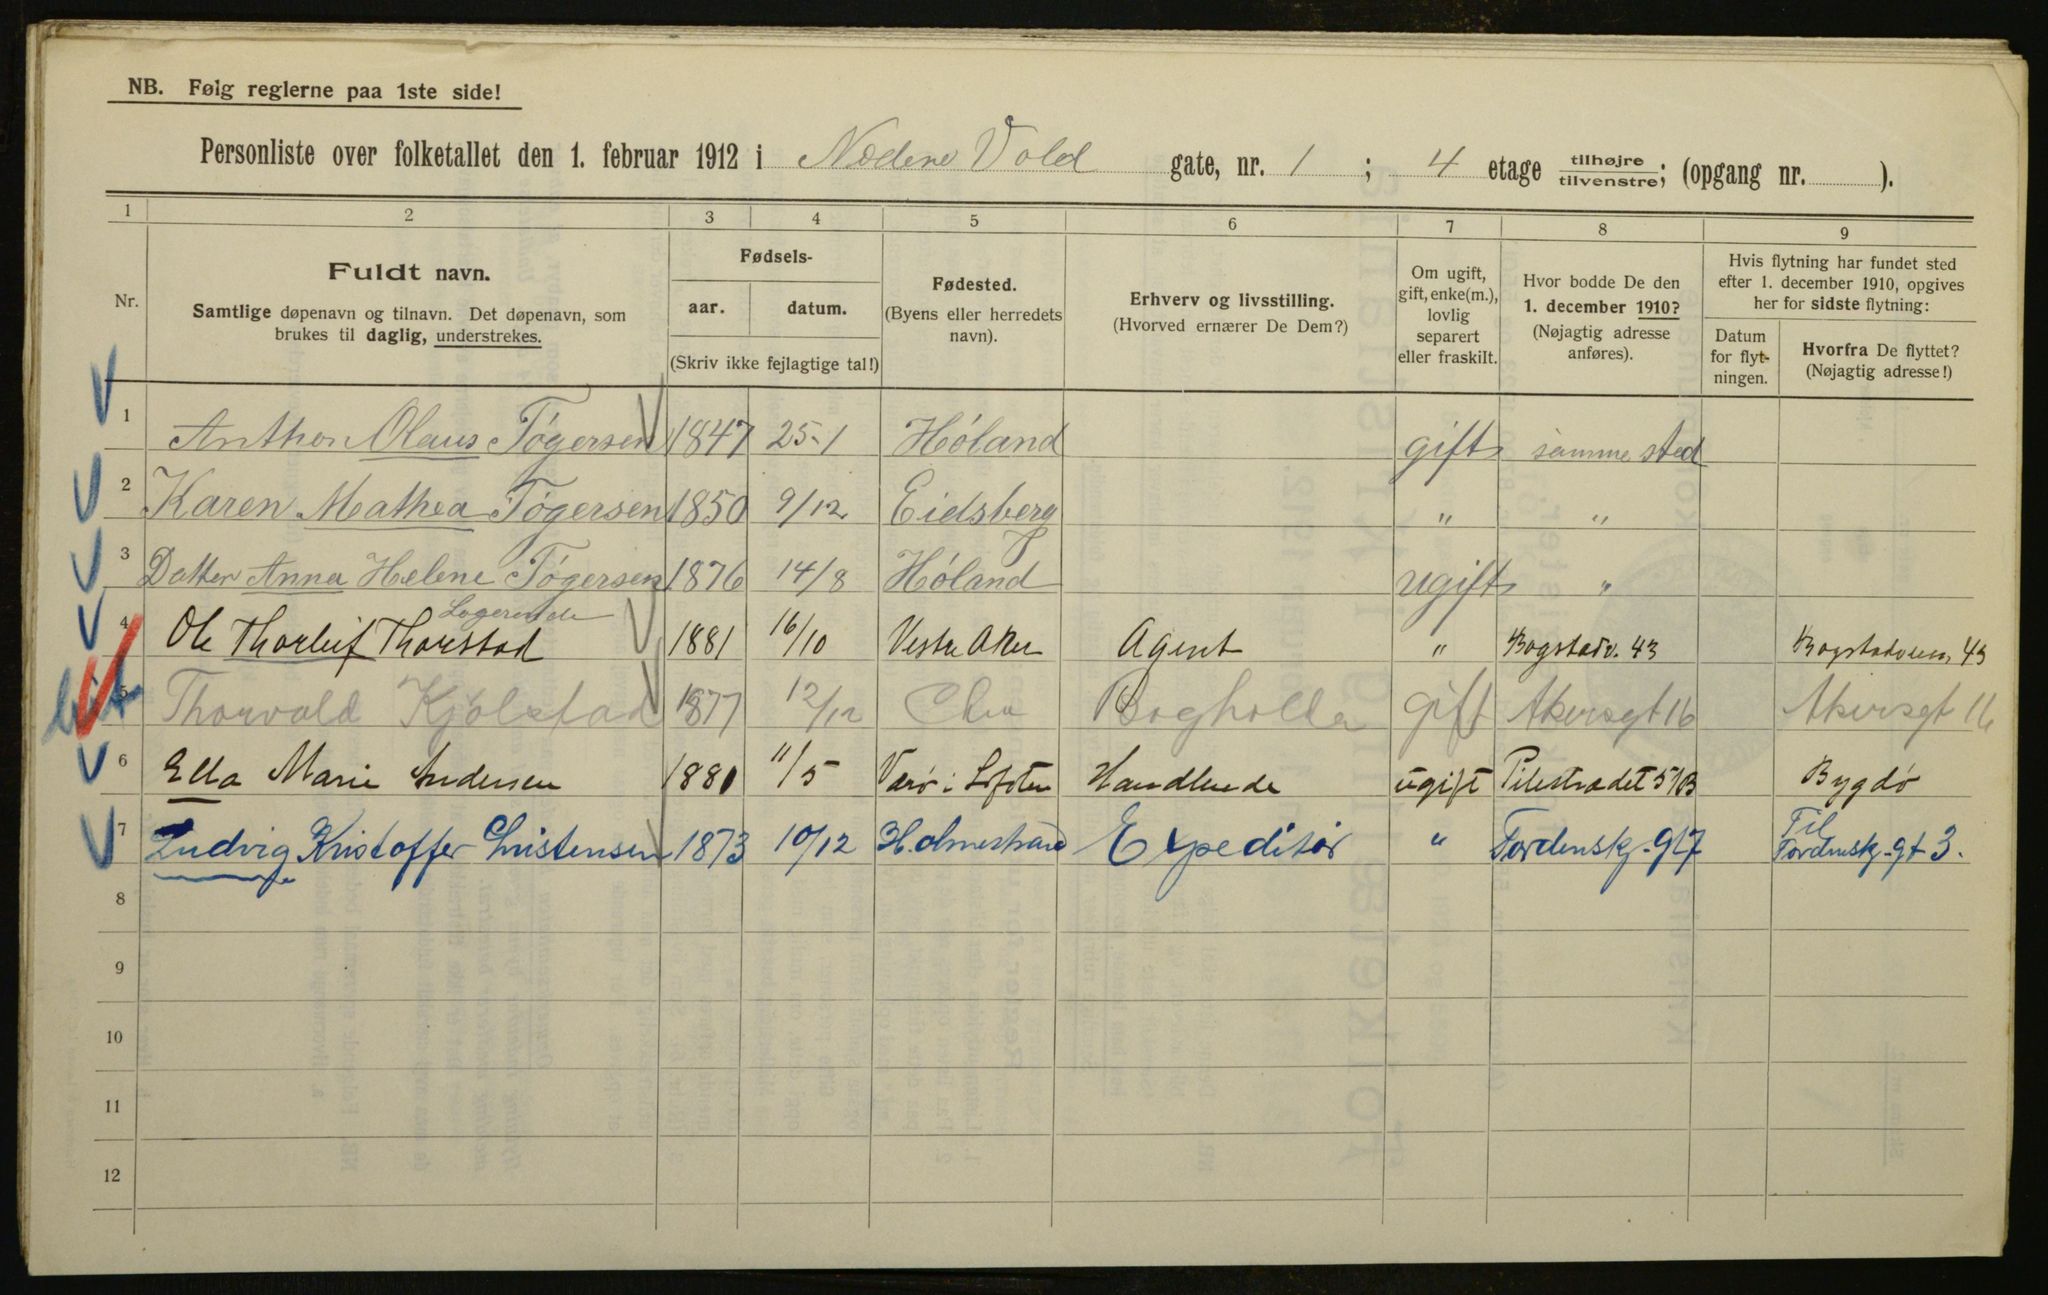 NB. Følg reglerne paa 1ste side!
Personliste over folketallet den 1. februar 1912 i Nedene Vold gate, nr. 1 ; 4 etage tilhøjre/tilvenstre; (opgang nr. ).
1 2 3 4 5 6 7 8 9
Nr.
Fuldt navn.
Samtlige døpenavn og tilnavn. Det døpenavn, som
brukes til daglig, understrekes.
Fødsels-
aar. datum.
(Skriv ikke fejlagtige tal!)
Fødested.
(Byens eller herredets
navn).
Erhverv og livsstilling.
(Hvorved ernærer De Dem?)
Om ugift,
gift, enke(m.),
lovlig
separert
eller fraskilt.
Hvor bodde De den
1. december 1910?
(Nøjagtig adresse
anføres).
Hvis flytning har fundet sted
efter 1. december 1910, opgives
her for sidste flytning:
Datum
for flyt-
ningen.
Hvorfra De flyttet?
(Nøjagtig adresse!)
1 Anthon Olaus Tøgersen 1847 25-1 Høland gift samme sted
2 Karen Mathea Tøgersen 1850 9/12 Eidsberg " "
3 Datter Anna Helene Tøgersen 1876 14/8 Høland ugift "
Logerende
4 Ole Thorleif Thorstad 1881 16/10 Vestre Aker Agent " Bogstadv. 43 Bogstadveien 43
5 Thorvald Kjølstad 1877 12/12 Chra Bogholder gift Akersgt 16 Akersgt 16
6 Ella Marie Andersen 1880 11/5 Værø i Lofoten Handlende ugift Pilestrædet 51B Bygdø
7 Ludvig Kristoffer Christensen 1873 10/12 Holmestrand Expeditør " Tordenskj. gt 7 Til
Tordenskj. gt 3.
8
9
10
11
12